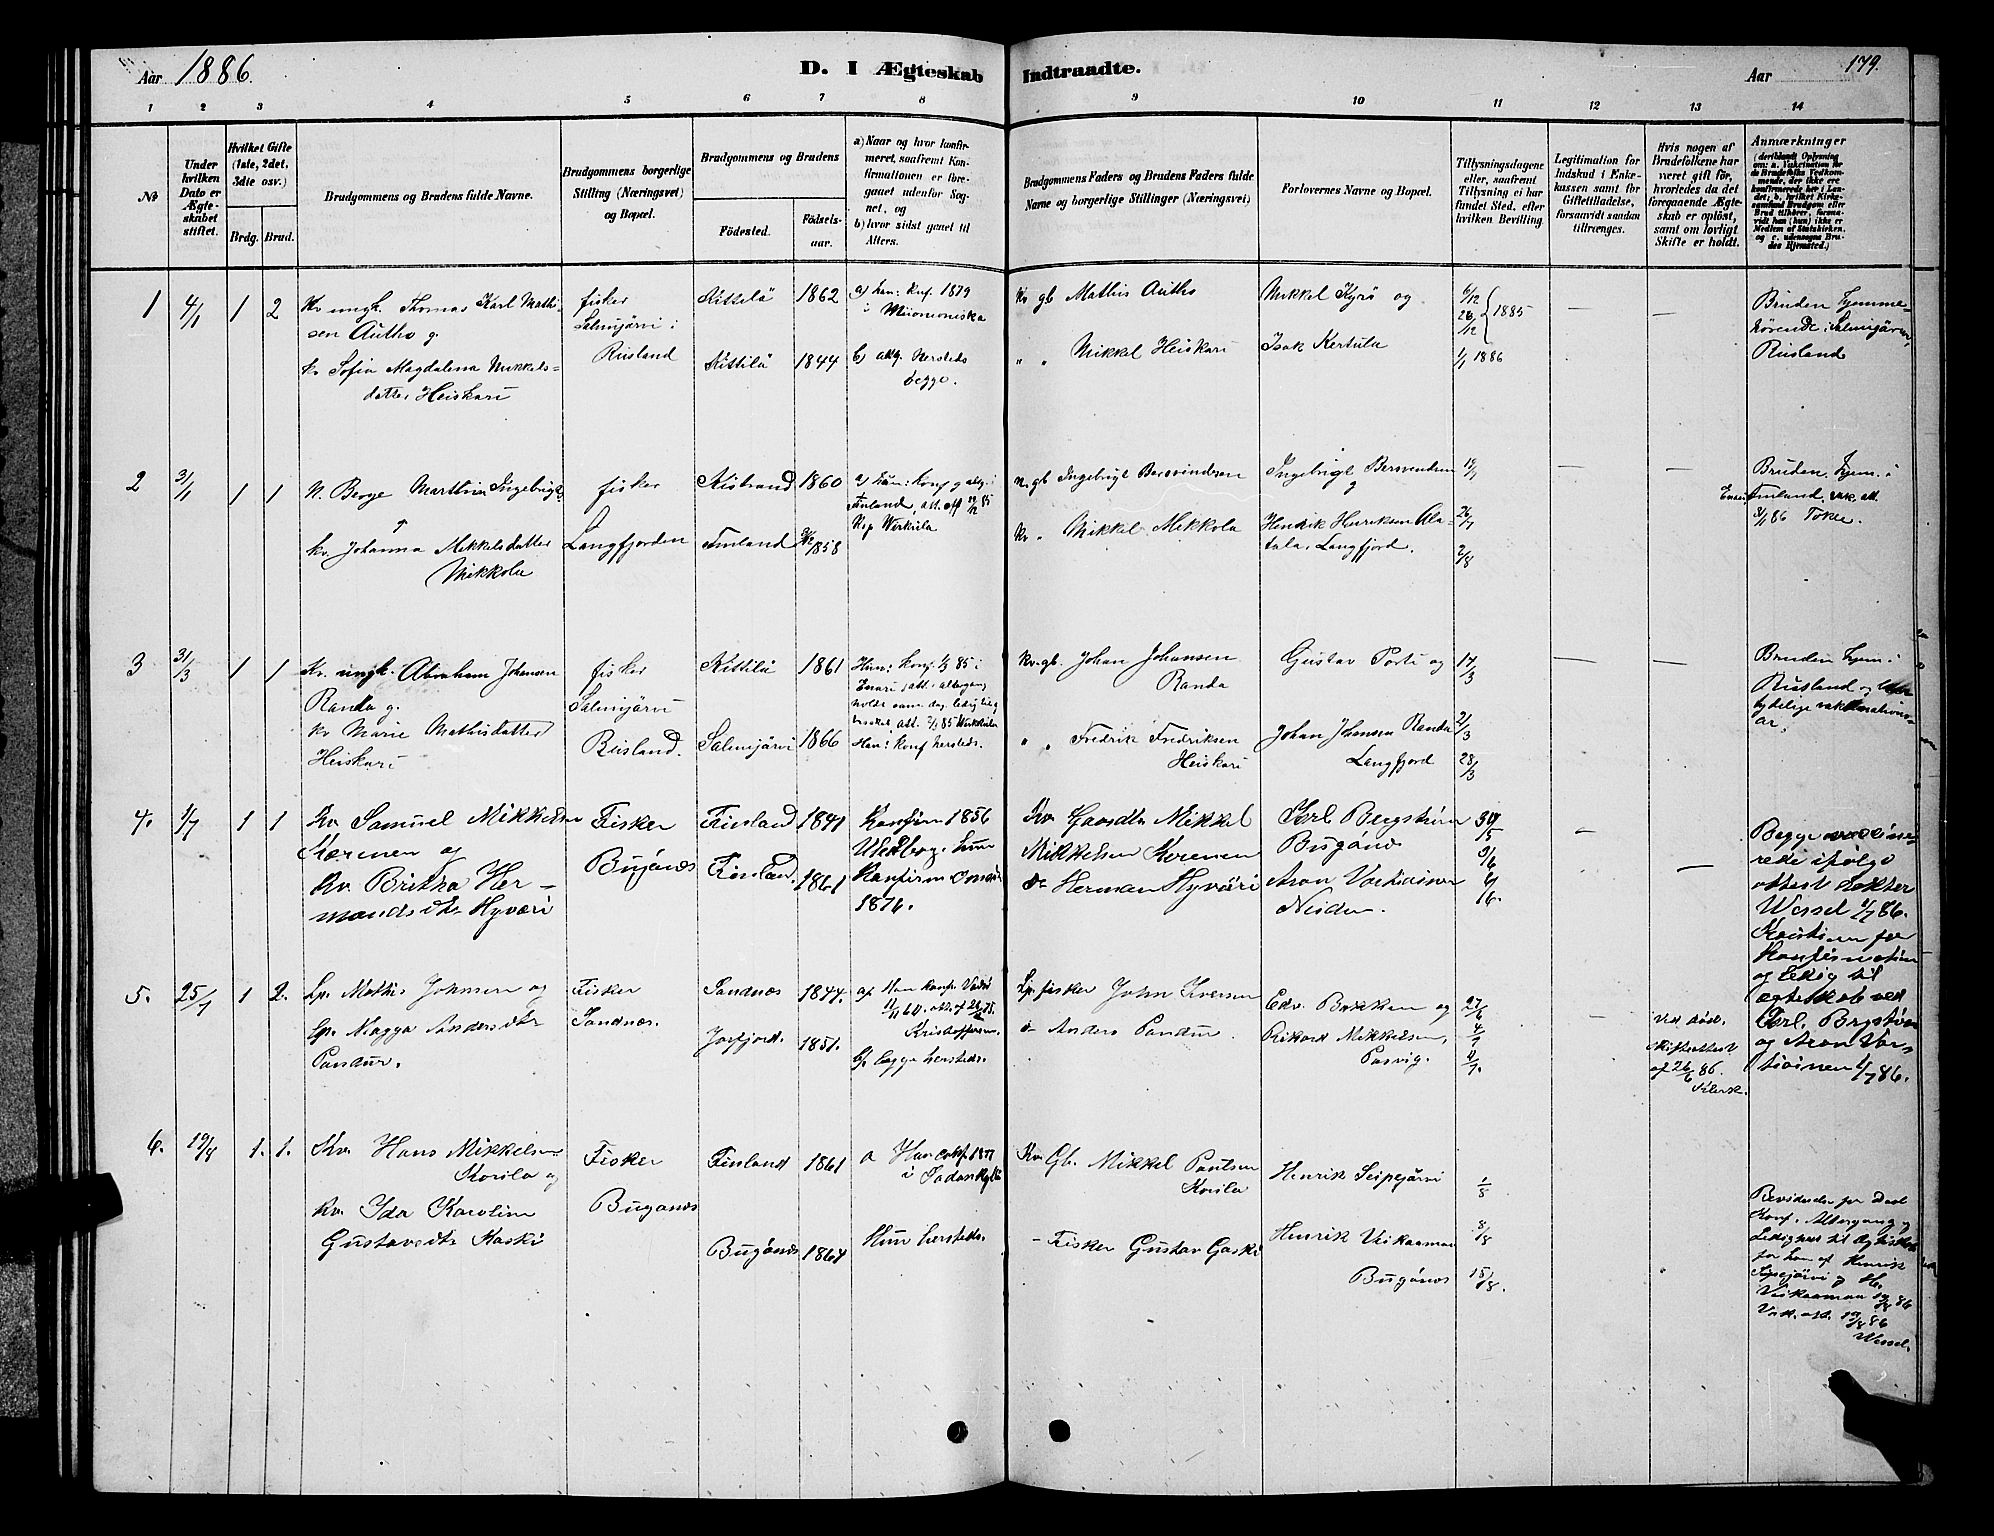 Aar 1886.
D. I Ægteskab Indtraadte.
Aar 179.
1 2 3 4 5 6 7 8 9 10 11 12 13 14
No
Under hvilken Dato er Ægteskabet stiftet.
Hvilket Gifte (1ste, 2det, 3die osv.)
Brdg. Brud.
Brudgommens og Brudens fulde Navne.
Brudgommens borgerlige Stilling (Næringsvei) og Bopæl.
Brudgommens og Brudens
Födested.
Födselsaar.
a) Naar og hvor konfirmeret, saafremt Konfirmationen er foregaaet udenfor Sognet, og
b) hvor sidst gaaet til Alters.
Brudgommens Faders og Brudens Faders fulde Navne og borgerlige Stillinger (Næringsvei)
Forlovernes Navne og Bopæl.
Tillysningsdagene eller, saafremt Tillysning ei har fundet Sted, efter hvilken Bevilling
Legitimation for Indskud i Enkekassen samt for Giftetilladelse, forsaavidt saadan tiltrænges.
Hvis nogen af Brudefolkene har været gift før, hvorledes da det foregaaende Ægteskab er opløst, samt om lovligt Skifte er holdt.
Anmærkninger
(deriblandt Oplysning om: a. Vakcination for de Brudefolks Vedkommende, der ikke ere konfirmerede her i Landet; b. hvilket Kirkesamfund Brudgom eller Brud tilhører, forsaavidt han (hun) ikke er Medlem af Statskirken, og c. udensogns Brudes Hjemsted.)
1 4/1 1 2
Kv ungk. Thomas Karl Mathisen Autho g.
kv Sofia Magdalena Mikkelsdatter Heiskari
fisker
Salmijærvi i
Rusland
Kittilä 1862
Kittilä 1844
a) han: knf. 1879
i Muonioniska
b) altg. hersteds
begge.
Kv gb Mathis Autho
" " Mikkel Heiskari
Mikkel Kyrö og
Isak Kertula
6/12
26/12 1885
1/1 1886
—
—
Bruden hjemmehørende i Salmijärvi
Rusland
2 3/1 1 1
N. Berge Marthin Ingebrigts
kv Johanna Mikkelsdatter
Mikkola
fisker
Langfjorden
Kistrand 1860
Finland 1858
a) han: konf g altg. i
Finland, att. af
Kp Werkila
n. gb Ingebrigt Berevindsen
kv " Mikkel Mikkola
Ingebrigt Berevendsen
g
Henrik Henriksen Alatala, Langfjord.
—
—
Bruden hjem. i
Enari Finland, vak. att.
3/1 86
3 31/3 1 1
Kv. ungk. Abraham Johansen
Randa g.
kv Marie Mathisdatter
Heiskari
fisker
Salmijärvi
Rusland.
Kittilä 1861
Salmijärvi 1866
Han: konf 85 i
Enari
Hun: konf hersteds.
kv. gb. Johan Johansen
Randa
" " Fredrik Fredriksen
Heiskari
Gustav Porti og
Johan Johansen Randa
Langfjord
14/3
21/3
28/3
—
—
Bruden hjem. i
Rusland og
tydelige vakcinationsar,
4. 1/7 1 1
Kv Samuel Mikkelsen
Kærenen og
Kv Britha Hermandsdtr Hyværi
Fisker
Bugönæs
Finland 1841
Finland. 1861
Konfirm 1856
Uleåborg. hun
Konfirm
1876.
Kv Gaardbr Mikkel
Mikkelsen Kerenen
Herman Hyväri
Karl Bergström
Bugönes
Aron Vartiainen
Neiden.
30/5
—
—
Begge vaccinerede ifølge
attest Dokter
Wessel 1/7 86.
Kaution for
Konfirmation
og ledig til
ægteskab ved
Karl Bergstöm
og Aron Vartiainen 1/7 86.
5. 25/7 1 2.
Lp. Mathis Johnsen og
Lp. Magga Andersdtr
Pandur.
Fisker
Sandnæs.
Sandnæs 1844.
Jarfjord. 1851.
a) Han konf. Vadsø
b) begge hersteds.
Lp. fisker John Iversen
Anders Pandur.
Edv. Bækken og
Rikard Mikkelsen,
Pasvig.
27/6
4/7
11/7.
—
Ved død.
Skifteattest
af 26/6 86.
6. 19/8 1. 1.
Kv. Hans Mikkelsen
Korila og
Kv. Ida Karolina
Gustavsdtr Kaski
Fisker
Bugönæs
Finland 1861
Bugönæs 1864
a Han conf. 1877
i Sodankylä
Hun hersteds.
Kv Gb. Mikkel
Korila
— Fisker Gustav Gaski
Henrik Seipejärvi
Henrik Veikaamaa
Bugönæs
1/8
8/8
15/8.
Bevidnelse for Daab
Konf. Altergang og
Ledighed til Ægteskab
for ham af Henrik
Sipejärvi og H.
Veikaamaa 19/8 86
Vak. att. 19/8 86
Wessel.